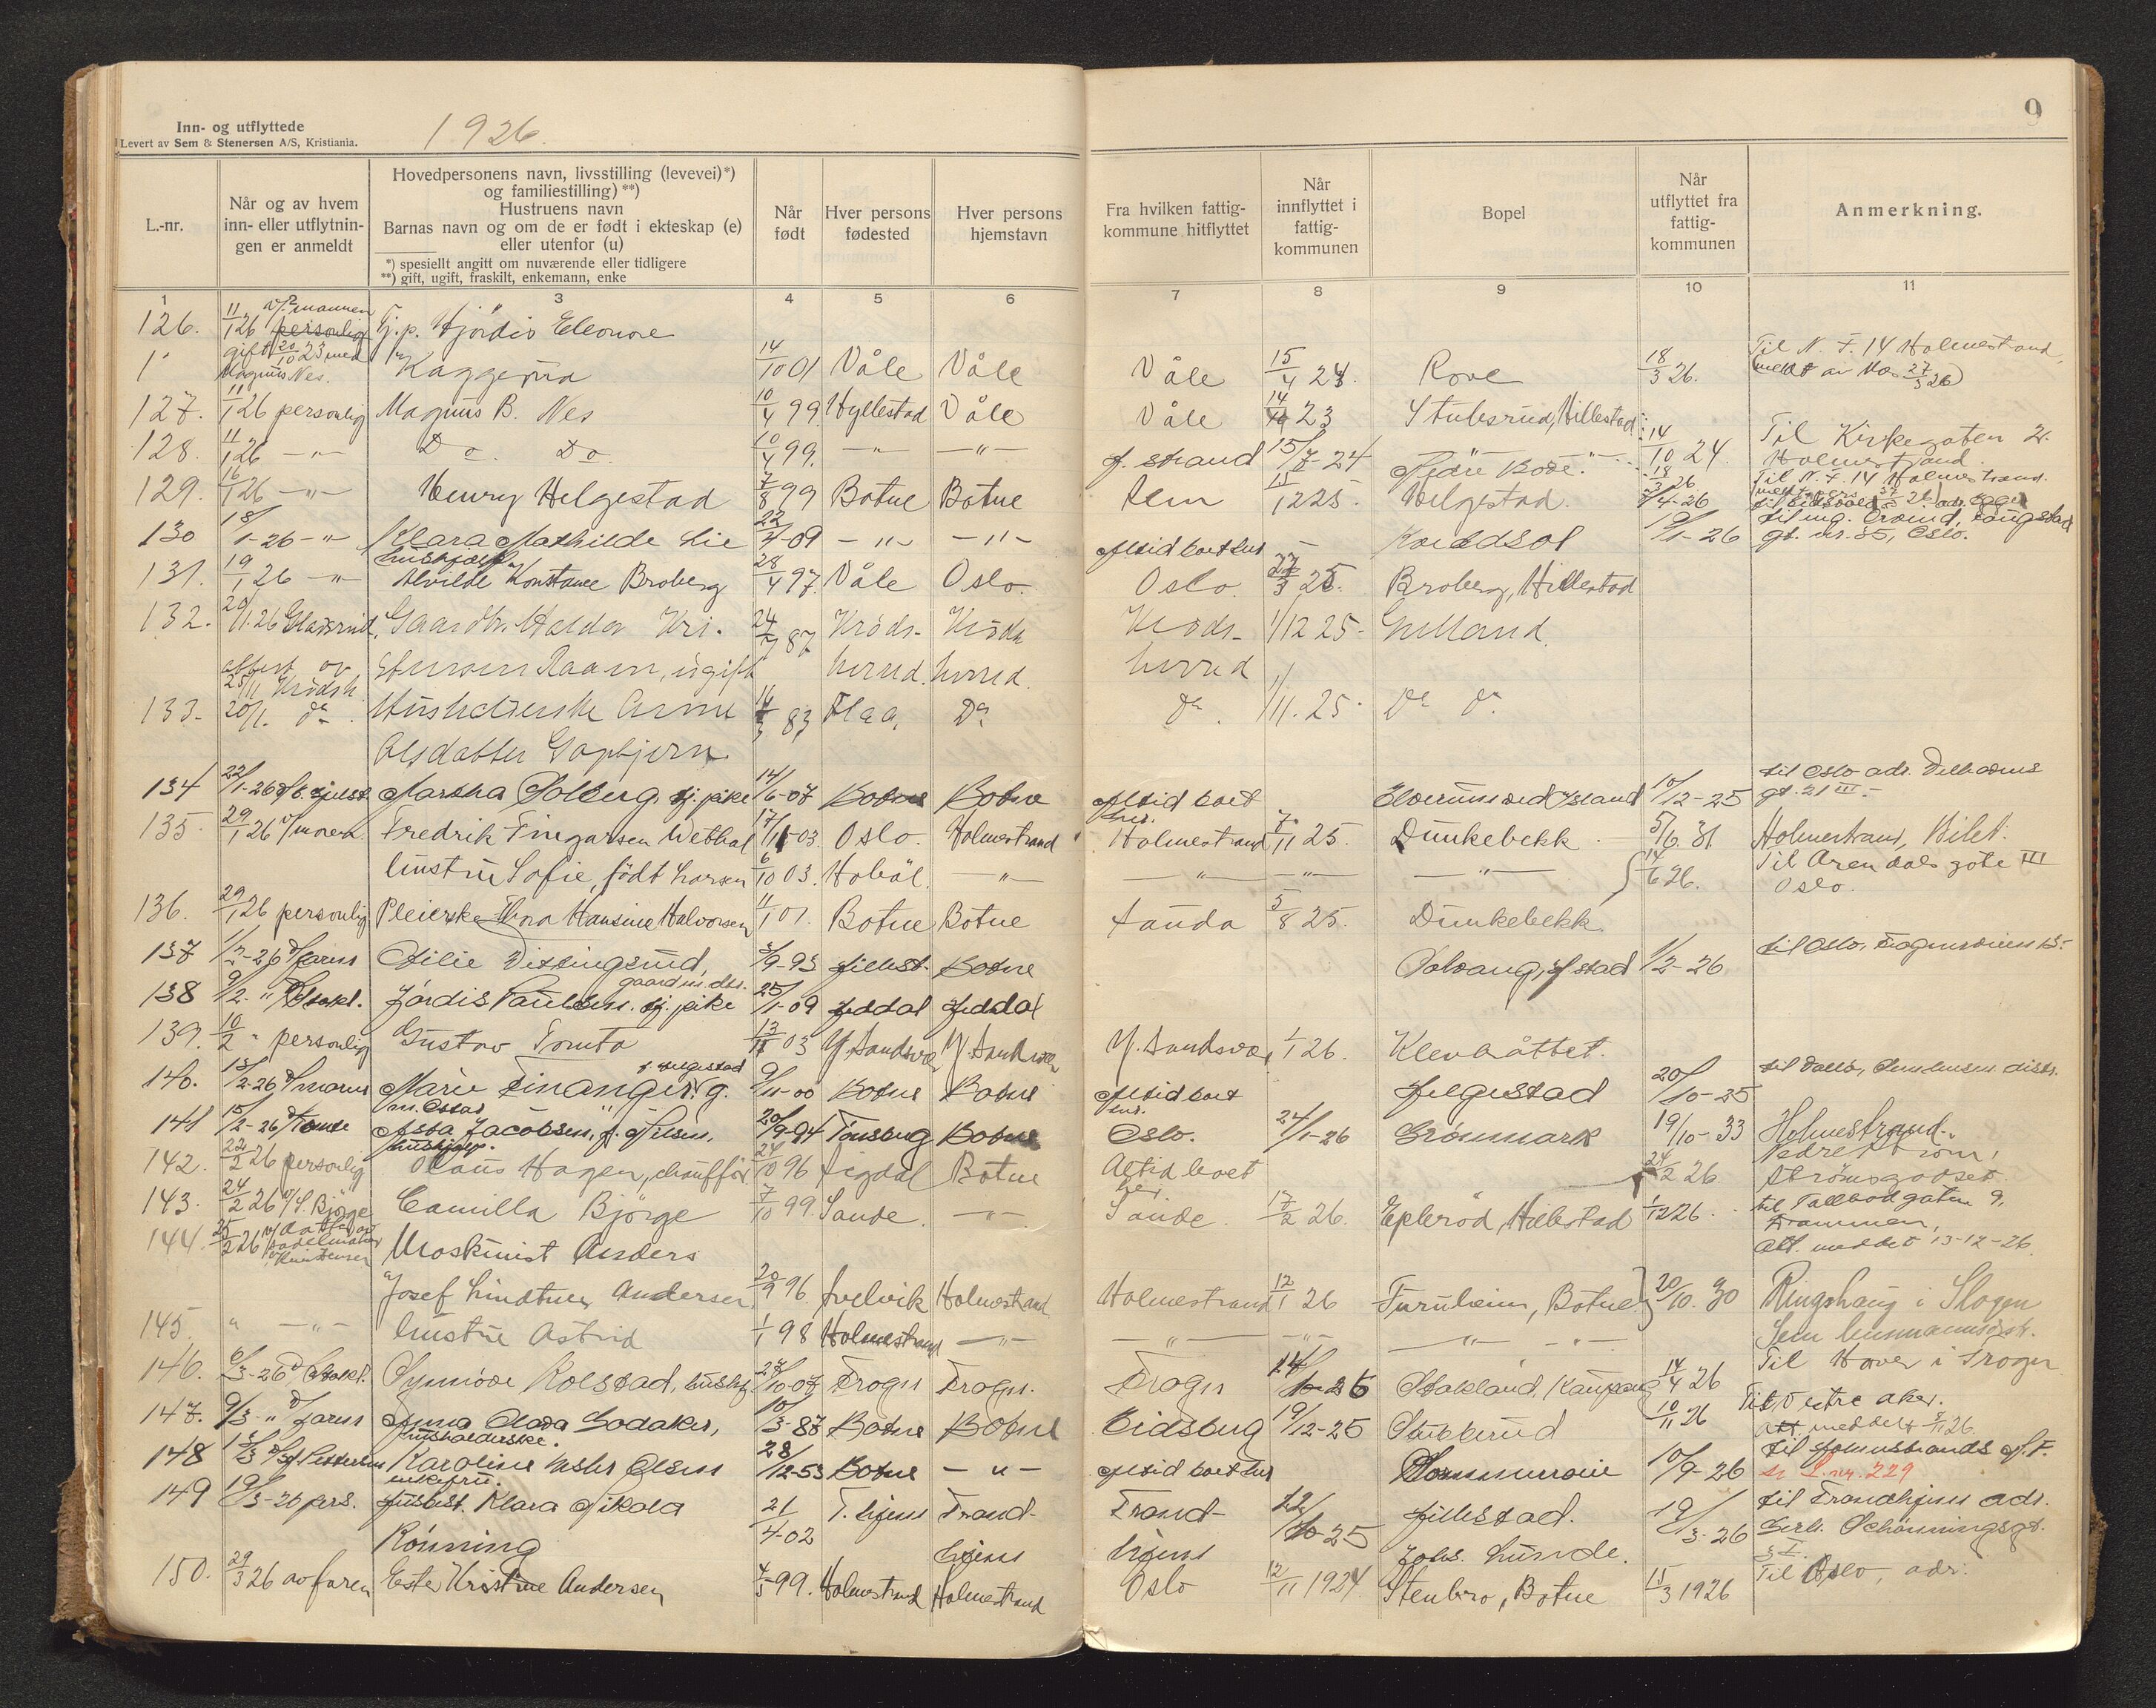 9
Inn- og utflyttede
Levert av Sem & Stenersen A/S, Kristiania.
1926.
L.-nr.
Når og av hvem
inn- eller utflytnin-
gen er anmeldt
Hovedpersonens navn, livsstilling (levevei)*)
og familiestilling) **)
Hustruens navn
Barnas navn og om de er født i ekteskap (e)
eller utenfor (u)
*) spesiellt angitt om nuværende eller tidligere
**) gift, ugift, fraskilt, enkemann, enke
Når
født
Hver persons
fødested
Hver persons
hjemstavn
Fra hvilken fattig-
kommune hitflyttet
Når
innflyttet i
fattig-
kommunen
Bopel
Når
utflyttet fra
fattig-
kommunen
Anmerkning.
1 3 4 5 6 7 8 9 10 11
126. 11/1 26 personlig mannen Tj.p. Hjördis Eleonore
gift 20/10 23 med Magnus Nes. Kaggerud 14/10 01 Våle Våle Våle 15/4 24. Rove 18/3 26. Til N. F. 14 Holmestrand,
127. 11/1 26 personlig Magnus B. Nes 10/4 99 Hyllestad Våle Våle 14/10 23 Stubsrud, Hillestad
128. 11/1 26 -"- Do. Do. 10/4 99. -"- -"- H. strand 15/7-24 Nedre Bode. 14/10 24 Til Kirkegaten 2. Holmestrand.
129. 16/1 26 -"- Henry Helgestad 7/8 99 Botne Botne Sem 15/12 25. Helgestad. 18/3 26 Til N. F. 14 Holmestrand.
130 18/1-26 -"- Klara Mathilde Lie 22/4-09 -"- -"- Altid boet her - 19/1-26
hushjelp gt. nr. 35, Oslo.
131. 19/1 26 -"- Alvilde Konstance Broberg 28/4 97. Våle Oslo. Oslo. 27/3 25. Broberg, Hillestad
132. 20/1.26 Gladsrud, Gaardbr. Haldor Kri. 24/7 87 Kröds- Kröds- Kröds- 1/12 25-
attest av Stensen Raaen, ugift herred. herred. herred
25/11 Krödsh.
133. 20/1. do. Husholderske Anne 14/3 83 Flaa, Do do. 1/11.25. Do do
Olsdatter Gapbjern
134 22/1-26 Martha Solberg tj. pike 14/6-07 Botne Botne Altid boet her. 10/12-25 til Oslo adr.
gt. 21 III.
135. 29/1 26 Fredrik Fingarsen Wethal 17/11-03. Oslo. Holmestrand Holmestrand 7/11 25. Dunkebekk 5/6 31 Holmestrand,
hustru Sofie, født Larsen 6/10 03. Hobøl. -"- -"- -"- -"- 14/6 26. Til Arendals gate III Oslo.
136. 29/1 26 personlig Pleierske Thora Hansine Halvorsen 11/1 01. Botne Botne Sande 5/8 25. Dunkebekk
137 1/2-26 faren Otilie 3/9-93 Hillest. Botne Solvang, H.stad 1/2-26 til Oslo,
138 9/2-" Stokl. Hjördis Paulsen. tj. pike gaard m. dtr. 25/1-09 Heddal Heddal
139. 10/2 " personlig Gustav Tomta 13/11 03 Y. Sandsvær Y. Sandsvær Y. Sandsvær 1/1 26. Klevbråttet.
140. 13/2-26 Marie Einanger. g. f. Helgestad 9/11-00 Botne Botne Altid boet her. Helgestad 20/10-25
141 15/2-26 Asta Jacobsen, f. Nilsen. 20/9-94 Tønsberg Botne Oslo. 24/1-26 Grönmark 19/10-33 Holmestrand.
hushjelp.
142. 22/2 26 personlig Olaus Hagen, chauffør 24/10 96 Sigdal Botne Altid boet her. 24/2 26 Nedre Strøm, Strømsgodset.
143. 24/2 26 v/S. Bjørge Camilla Bjørge 7/10 99. Sande. -"- Sande. 17/2 26. Eplerød, Hillestad 1/12 26. til Tollbodgaten 9, Drammen,
att. meddelt 13-12-26
144. 25/2 26 Maskinist Anders
Josef Lindtner Andersen 20/9 96. Svelvik Holmestrand Holmestrand 12/1 26 Furuheim, Botne. 20/10. 30 Ringshaug i Slagen
145. " -"- hustru Astrid 1/1 98 Holmestrand -"- -"- -"- -"- Sem
146. 6/3-26 Stokl. Synnöve Kolstad, hushj. 27/10-07 Frogn Frogn. Frogn 14/10-25 Stokland, Kaupang 14/4 26 Til Haver i Frogn
147. 9/3-" faren Anna Clara Godaker, 10/3-87 Botne Botne Eidsberg 19/12-25 Stubberud 10/11 26 Til Vestre Aker.
husholderske. att. meddelt 5/11 26.
148 15/3 Karoline Olsen 28/12-53 Botne -"- Altid boet her 10/9-26 til Holmestrands N.F.
enkefru. se L.nr. 229
149 19/3-26 pers. Husbest. Klara Nikola 21/4-02 T.hjem Trond- Trond- 12/10-25 Hillestad. 19/3-26 til Trondhjem adr.
Rönning hjem hjem Johs. Lunde. Schönningsgt.
150. 29/3 26 av faren Ester Kristine Andersen 4/5 99. Holmestrand Holmestrand Oslo 12/11 1924 Stenbro, Botne 15/3 1926 Til Oslo, adr.